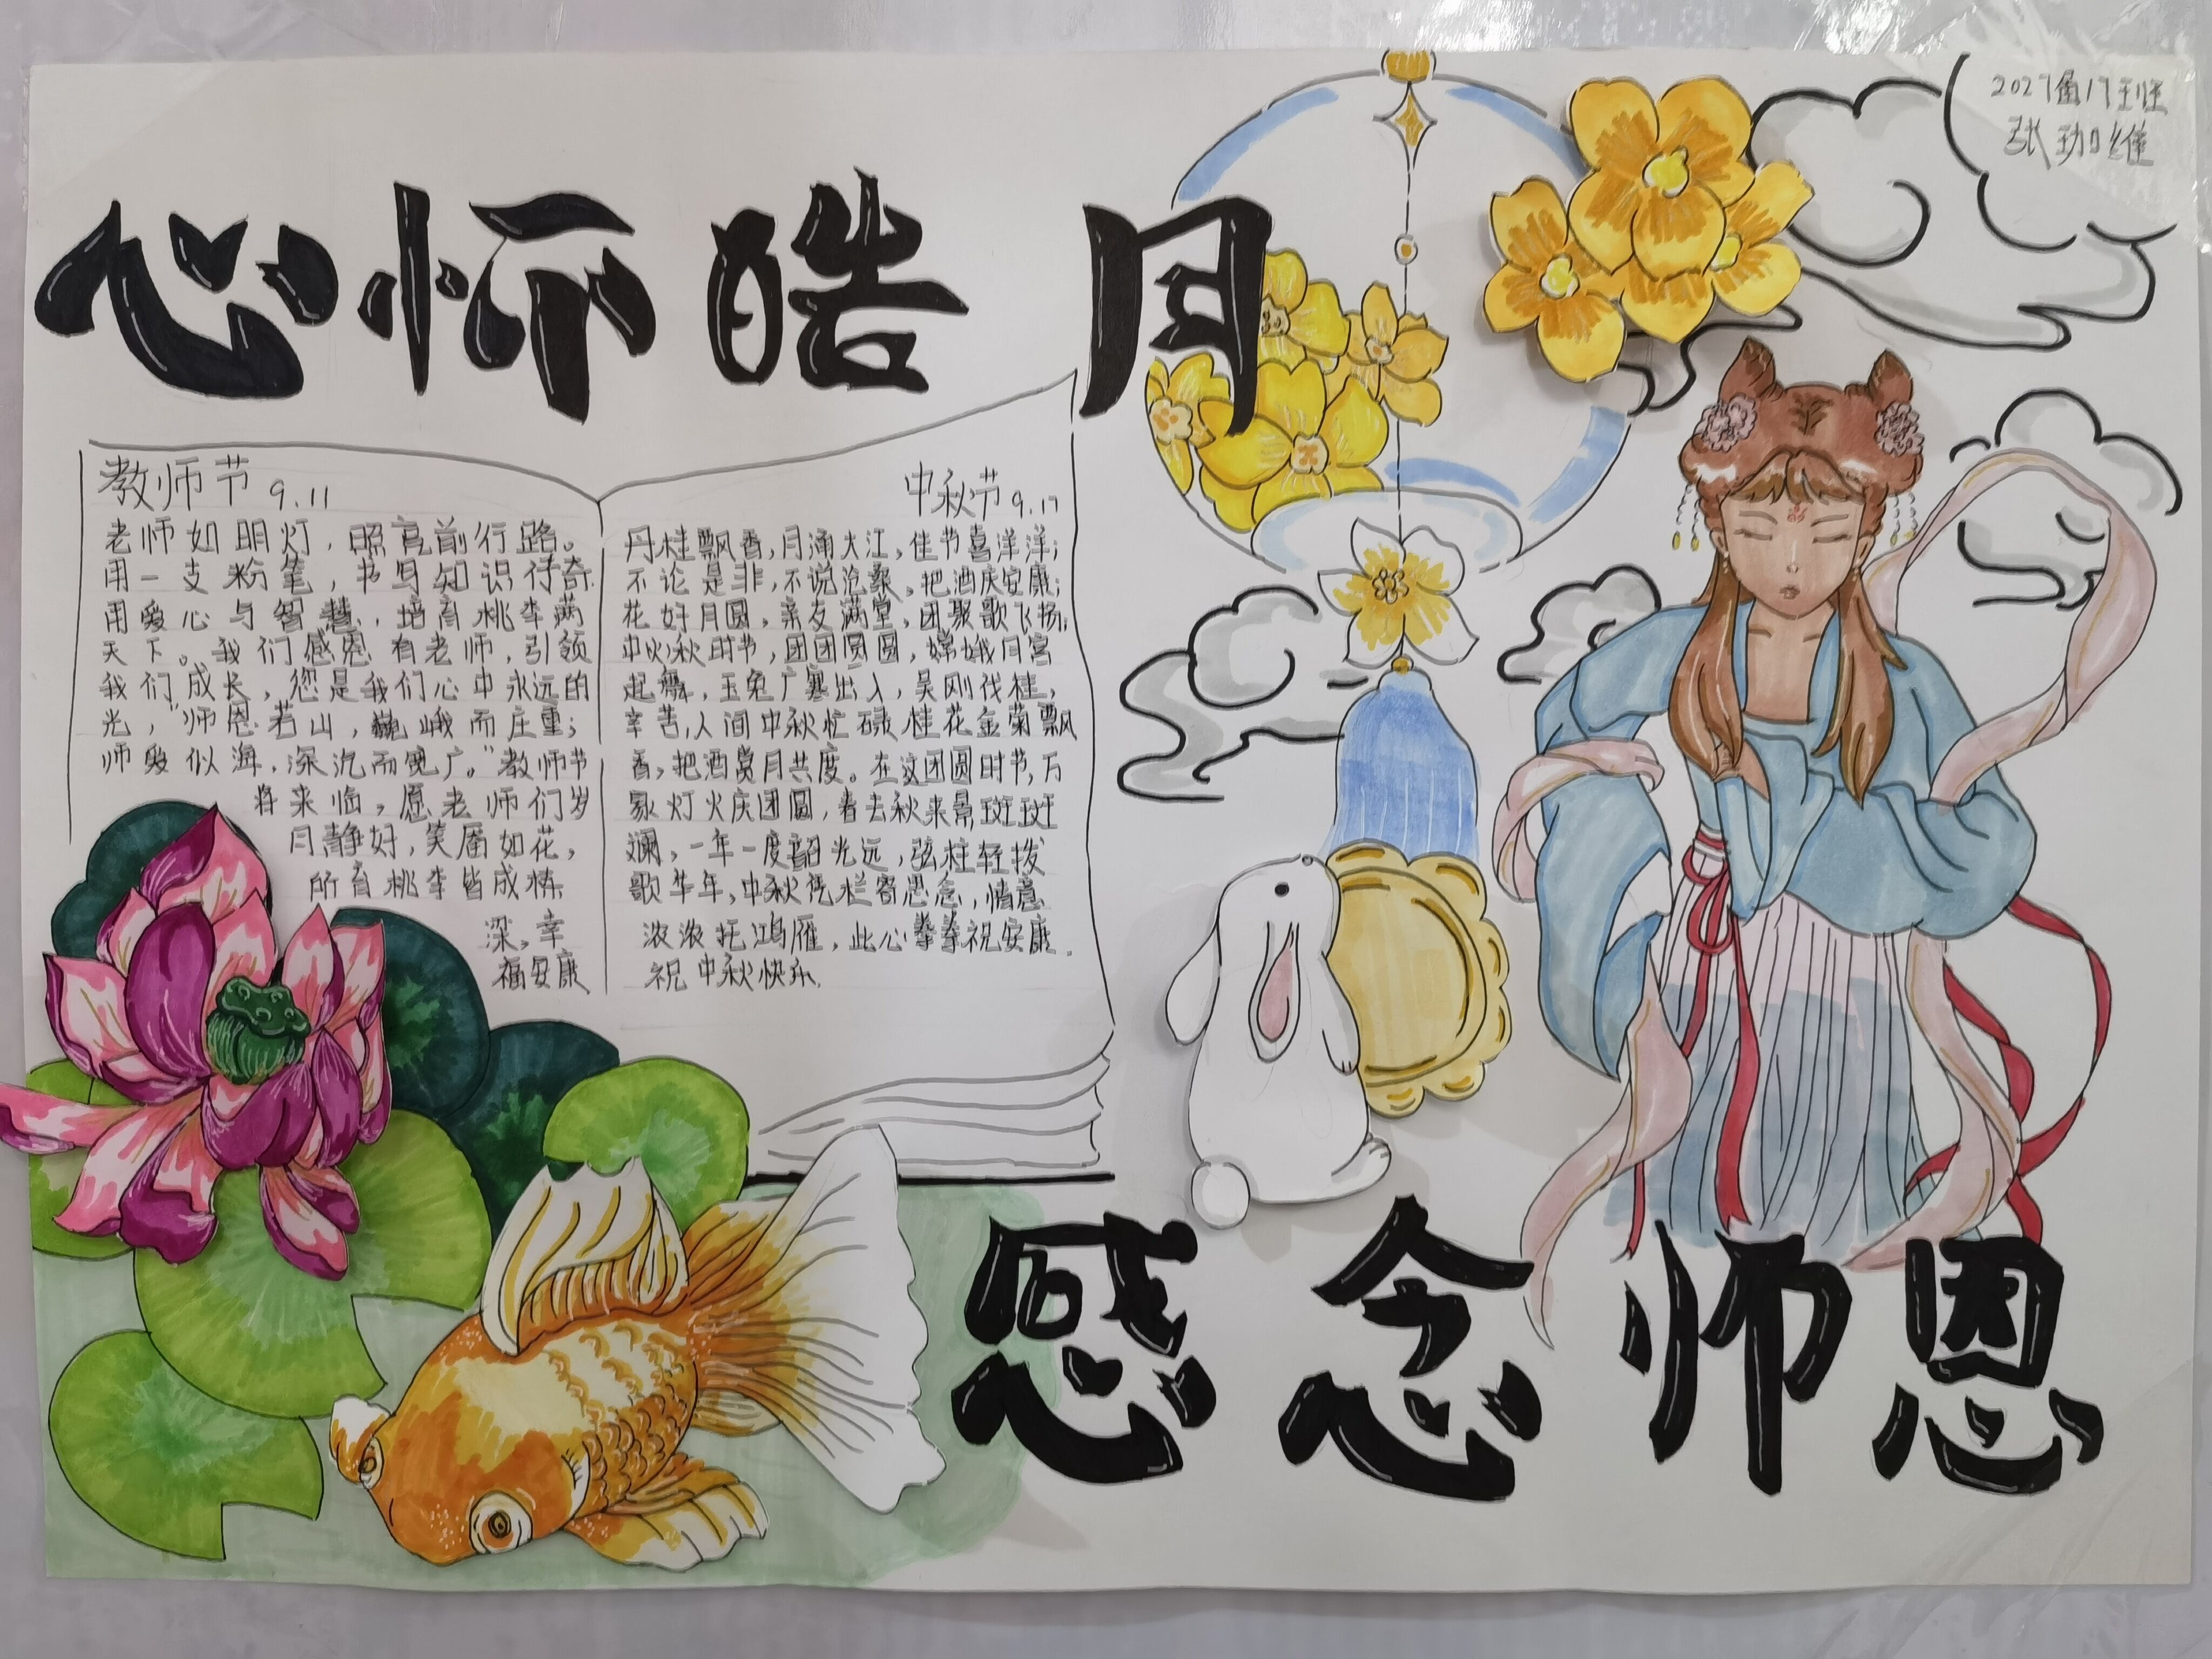 2027届17班
张珈维
心怀皓月
教师节 9.11
老师如明灯，照亮前行路。
用一支粉笔，书写知识传奇
用爱心与智慧，培育桃李满
天下。我们感恩有老师，引领
我们成长，您是我们心中永远的
光，“师恩若山，巍峨而庄重；
师爱似海，深沉而宽广。”教师节
将来临，愿老师们岁
月静好，笑靥如花，
所育桃李皆成栋
深，幸
福安康
中秋节 9.17
丹桂飘香，月涌大江，佳节喜洋洋；
不论是非，不说沧桑，把酒庆安康；
花好月圆，亲友满堂，团聚歌飞扬；
中秋时节，团团圆圆，嫦娥月宫
起舞，玉兔广寒出入，吴刚伐桂，
辛苦，人间中秋忙碌，桂花金菊飘
香，把酒赏月共度。在这团圆时节，万
家灯火庆团圆，春去秋来景斑斑
斓，一年一度韶光远，弦柱轻拨
歌华年，中秋凭栏寄思念，情意
浓浓托鸿雁，此心拳拳祝安康.
祝中秋快乐.
感念师恩